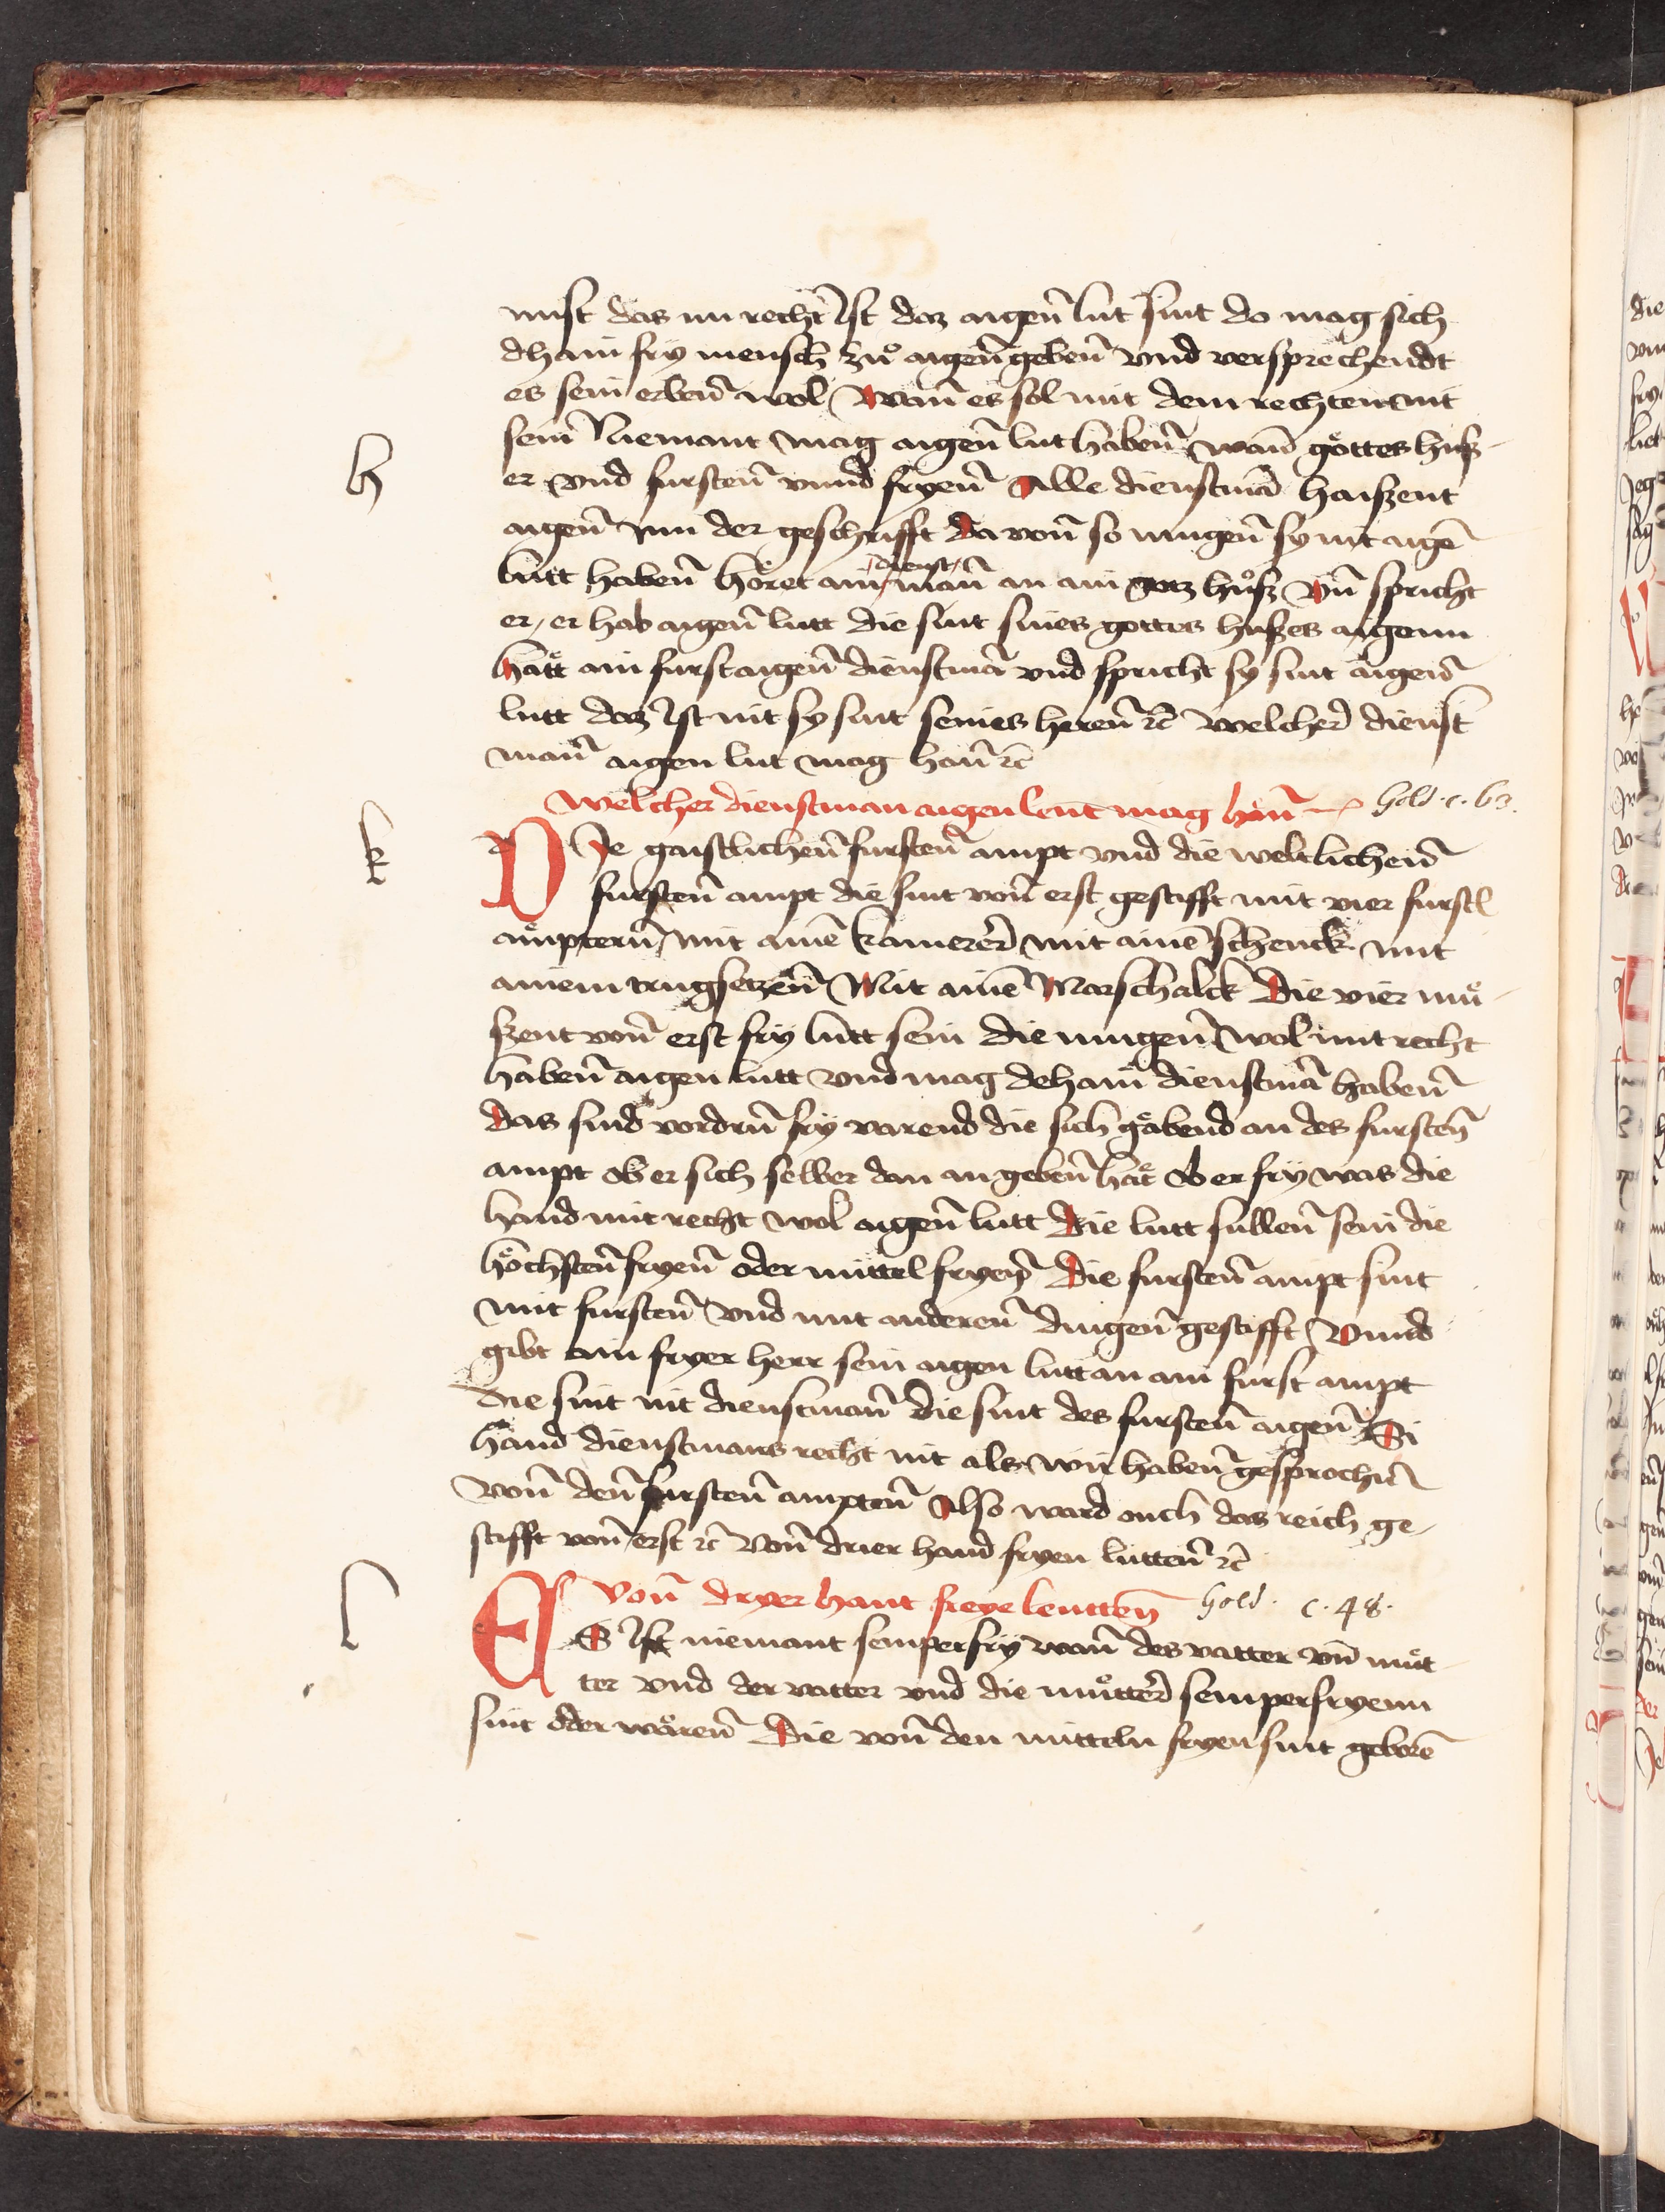 mist das nu recht Ist daz aigen̄ lut sint do mag sich
dhain fry mensch zuͦ aigen̄ geben̄ vnd versprechendt
es sein erben̄ wol Wan̄ es sol mit dem rechten nit
sein Niemant mag aigen̄ lut haben̄ wan̄ göttes hüß
h
er vnd fursten̄ vnnd fryen̄ Alle dienstmā haiszent
aigen̄ inn der geschrifft Da von̄ so mugen̄ sy nit aigē
lütt haben̄ Höret ain dienst man̄ an ain gotz huͦß Vn̄ spricht
er, er hab aigen̄ lutt die sint sines gottes hußes aigenn
Hätt ain furst aigen̄ dienstmā vnd spricht sy sint aigen̄
lutt daz Ist nit sy sint seines heren̄ ꝛc Welcher dienst
man̄ aigen lut mag han̄ ꝛc
Welcher dienstman aigen leut mag han̄ Gold. c. 63.
k
DIe gaistlichen̄ fursten̄ ampt vnd die weltlichen̄
fursten̄ ampt die sint von̄ erst gestifft mit vier furstl
ämptern̄ mit ainē kamerer mit ainē schenck mit
ainem trugsetzen̄ Mit ainē Marschalck Die vier muͤ
szent von̄ erst fry lütt sein die mugen̄ wol mit recht
haben̄ aigen lutt vnd mag dehain dienstmā haben̄
das sind vordrn̄ fry warend die sich gäbend an des fursten̄
ampt Ob er sich selber dan an geben̄ hät Ob er fry was die
hand mit recht wol aigen̄ lutt Die lutt sullen̄ sein die
höchsten̄ fryen̄ oder mittel fryen̄ Die fursten̄ ampt sint
mit fursten̄ vnd mit anderen̄ dingen̄ gestifft Vnnd
gibt ain fryer herr sein aigen lütt an ain furst ampt
die sint nit dienstman̄ die sint des fursten̄ aigen̄ Si
hand dienstmans recht nit als wir haben̄ gesprochen̄
Von̄ den̄ fursten̄ ampten̄ Also ward ouch das reich ge-
stifft von̄ erst ꝛc Von̄ drier hand fryen lutten̄ ꝛc
l
Von̄ dryer hant freye leutten̄ Gold. c. 48.
ES Ist niemant semperfry wan̄ des vatter vn̄ muͤt
ter vnd der vatter vnd die muͤtter semperfryenn
sint oder wären̄ Die von̄ den mitteln fryen sint geborē